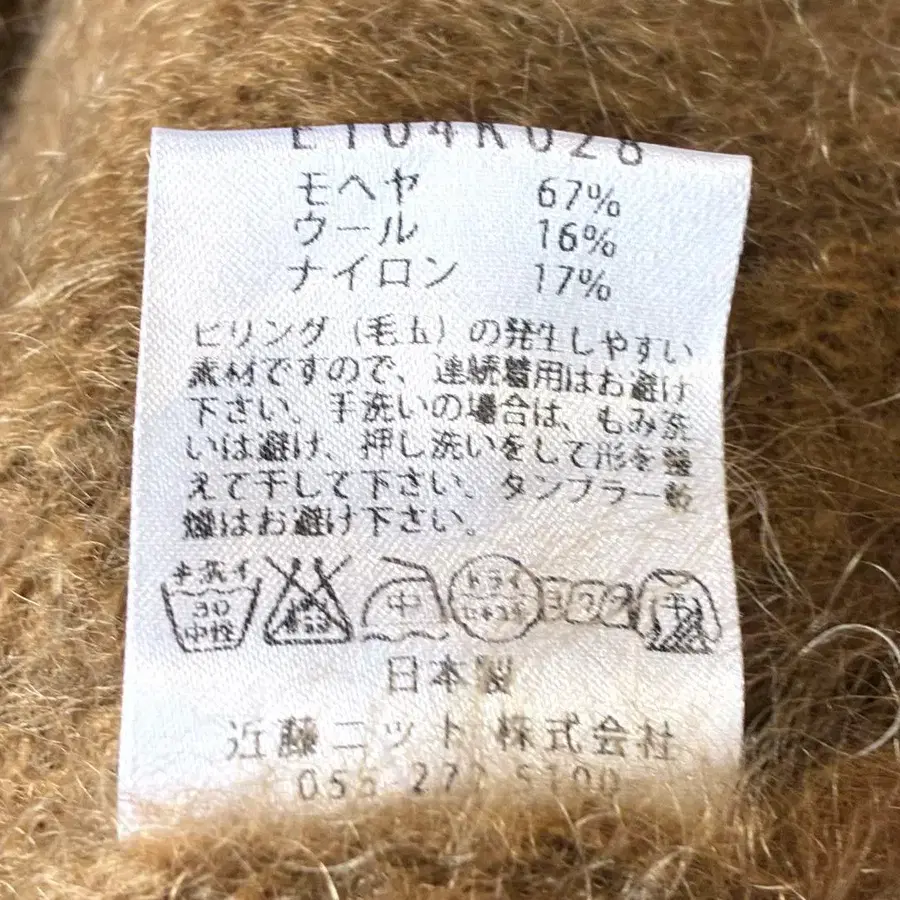 E104K028
モヘヤ 67%
ウール 16%
ナイロン 17%
ピリング（毛玉）の発生しやすい
素材ですので、連続着用はお避け
下さい。手洗いの場合は、もみ洗
いは避け、押し洗いをして形を整
えて干して下さい。タンブラー乾
燥はお避け下さい。
手洗イ 30 中性 中 ドライ ヨワク 平
日本製
近藤ニット株式会社